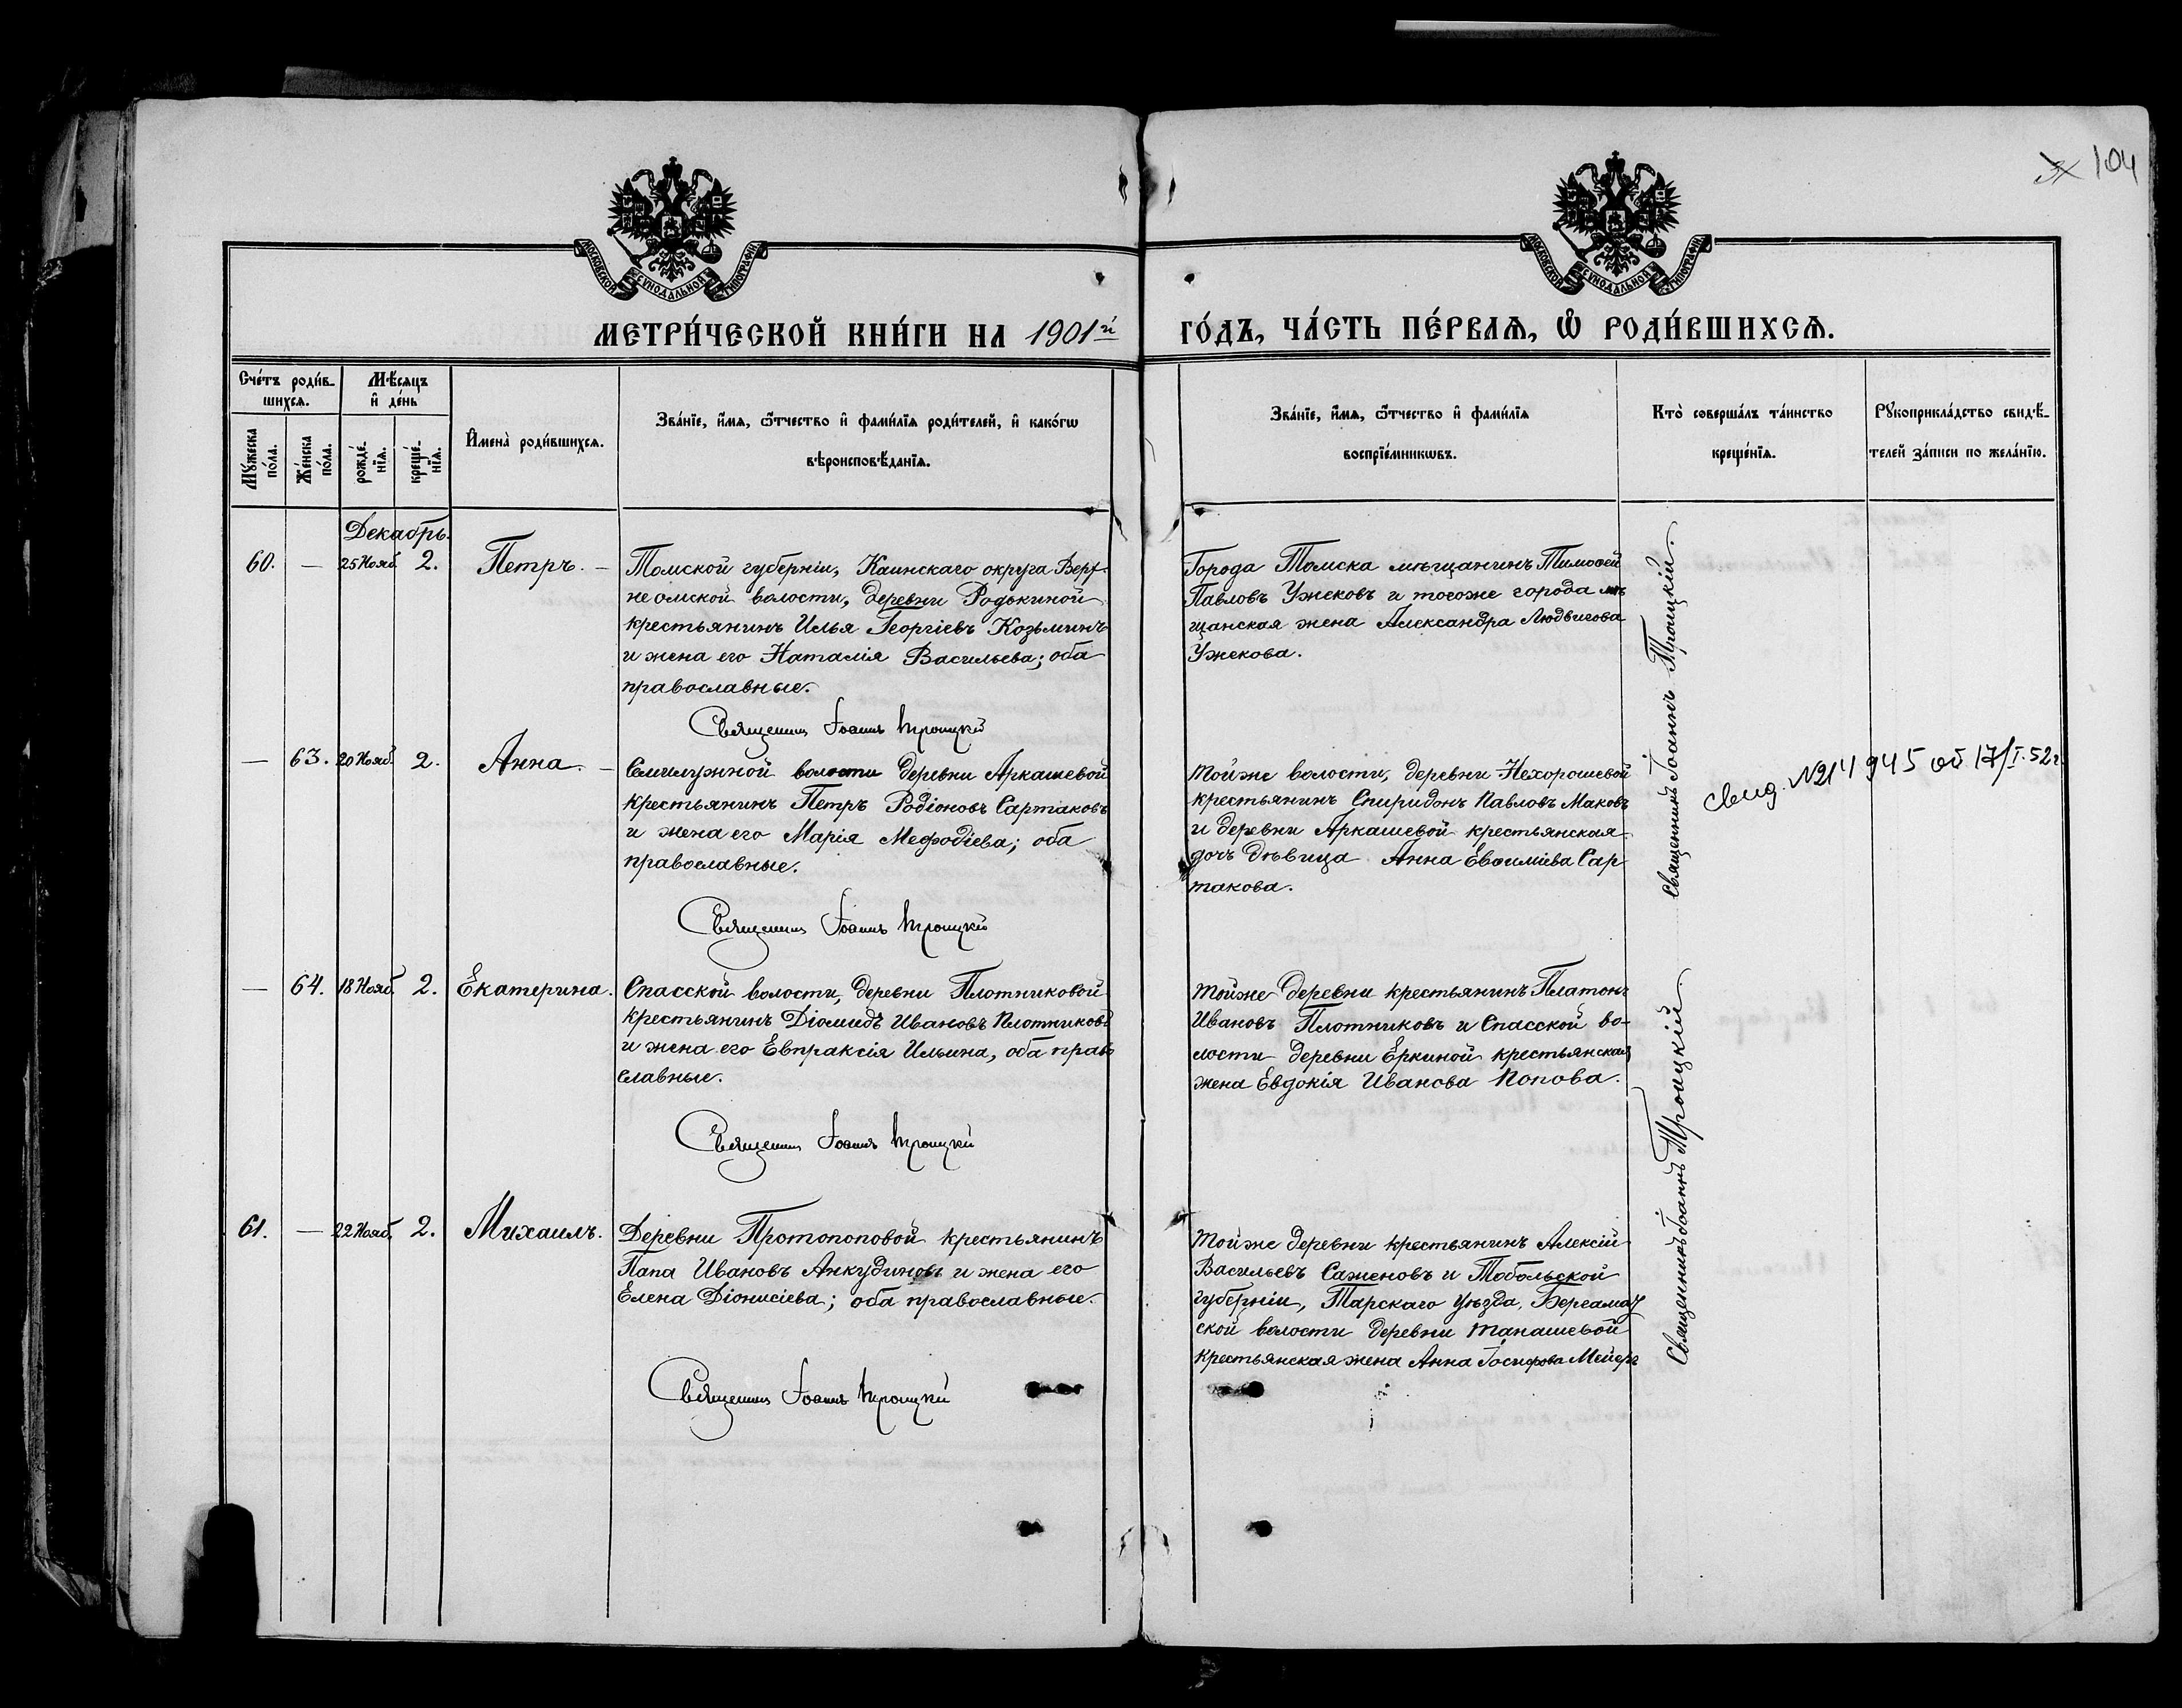 104
МОСКОВСКОЙ СѴНОДАЛЬНОЙ ТИПОГРАФІИ
МОСКОВСКОЙ СѴНОДАЛЬНОЙ ТИПОГРАФІИ
МЕТРИ́ЧЕСКОЙ КНИ́ГИ НА 1901й ГО́ДЪ, ЧА́СТЬ ПЕ́РВАѦ, Ѡ҆ РОДИ́ВШИХСѦ.
Сче́тъ роди́в-
шихсѧ.
Мꙋ́жеска
по́ла.
Же́нска
по́ла.
Мѣ́сѧцъ
и҆ де́нь
рожде́-
нїѧ.
креще́-
нїѧ.
И҆мена̀ роди́вшихсѧ.
Зва́нїе, и҆́мѧ, ѻ҆́тчество и҆ фами́лїѧ роди́телей, и҆ како́гѡ
вѣроисповѣ́данїѧ.
Зва́нїе, и҆́мѧ, ѻ҆́тчество и҆ фами́лїѧ
воспрїе́мникѡвъ.
Кто̀ соверша́лъ та́инство
креще́нїѧ.
Рꙋкоприкла́дство свидѣ́-
телей за́писи по жела́нїю.
Декабрь.
60. — 25 Нояб. 2. Петръ. —
Томской губерніи, Каинскаго округа Верх-
не омской волости, деревни Родькиной
крестьянинъ Илья Георгіевъ Козьминъ
и жена его Наталія Васильева; оба
православные.
Священник Іоаннъ Троицкій
Города Томска мѣщанинъ Тимоѳей
Павловъ Ужековъ и тогоже города мѣ
щанская жена Александра Людвигова
Ужекова.
Священникъ Іоаннъ Троицкій.
— 63. 20 Нояб. 2. Анна. —
Семилужной волости деревни Аркашевой
крестьянинъ Петръ Родіоновъ Сартаковъ
и жена его Марія Меѳодіева; оба
православные.
Священник Іоаннъ Троицкій
Тойже волости, деревни Нехорошевой
крестьянинъ Спиридонъ Павловъ Маковъ
и деревни Аркашевой крестьянская
дочь дѣвица Анна Евѳиміева Сар
такова.
свид. № 214945 от 17/I.52г.
— 64. 18 Нояб. 2. Екатерина.
Спасской волости, деревни Плотниковой
крестьянинъ Діомидъ Ивановъ Плотниковъ
и жена его Евпраксія Ильина, оба право
славные.
Священник Іоаннъ Троицкій
Тойже деревни крестьянинъ Платонъ
Ивановъ Плотниковъ и Спасской во-
лости деревни Еркиной крестьянская
жена Евдокія Иванова Попова.
Священникъ Іоаннъ Троицкій.
61. — 22 Нояб. 2. Михаилъ.
Деревни Протопоповой крестьянинъ
Папа Ивановъ Анкудиновъ и жена его
Елена Діонисіева; оба православные.
Священник Іоаннъ Троицкій
Тойже деревни крестьянинъ Алексій
Васильевъ Саженовъ и Тобольской
губерніи, Тарскаго уѣзда, Бергамац
ской волости деревни Танашевой
крестьянская жена Анна Іосифова Мейеръ